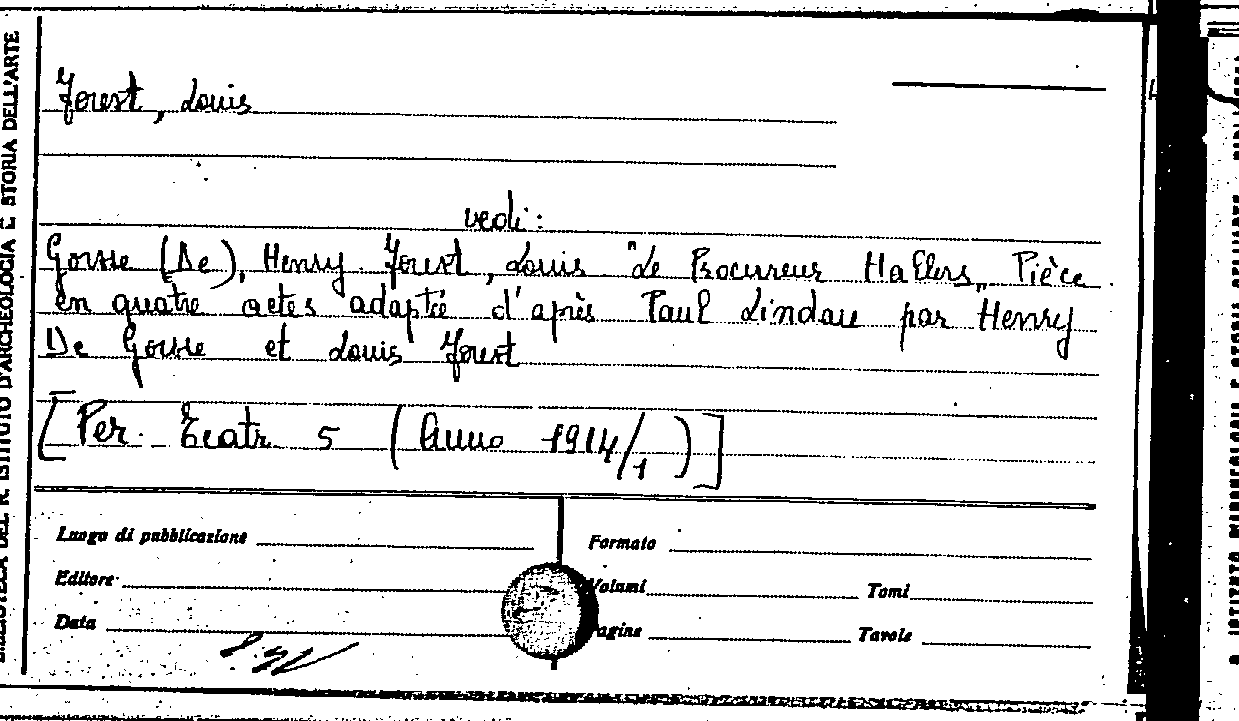 Forest, Louis
vedi:
Gorsse (De), Henry. Forest, Louis "Le Procureur Hallers„ Pièce
en quatre actes adaptée d'après Paul Lindau par Henry
De Gorsse et Louis Forest
[Per. Teatr. 5 (Anno 1914/1)]
Luogo di pubblicazione Formato
Editore Volumi Tomi
Data Pagine Tavole
BIBLIOTECA DEL R. ISTITUTO D'ARCHEOLOGIA E STORIA DELL'ARTE